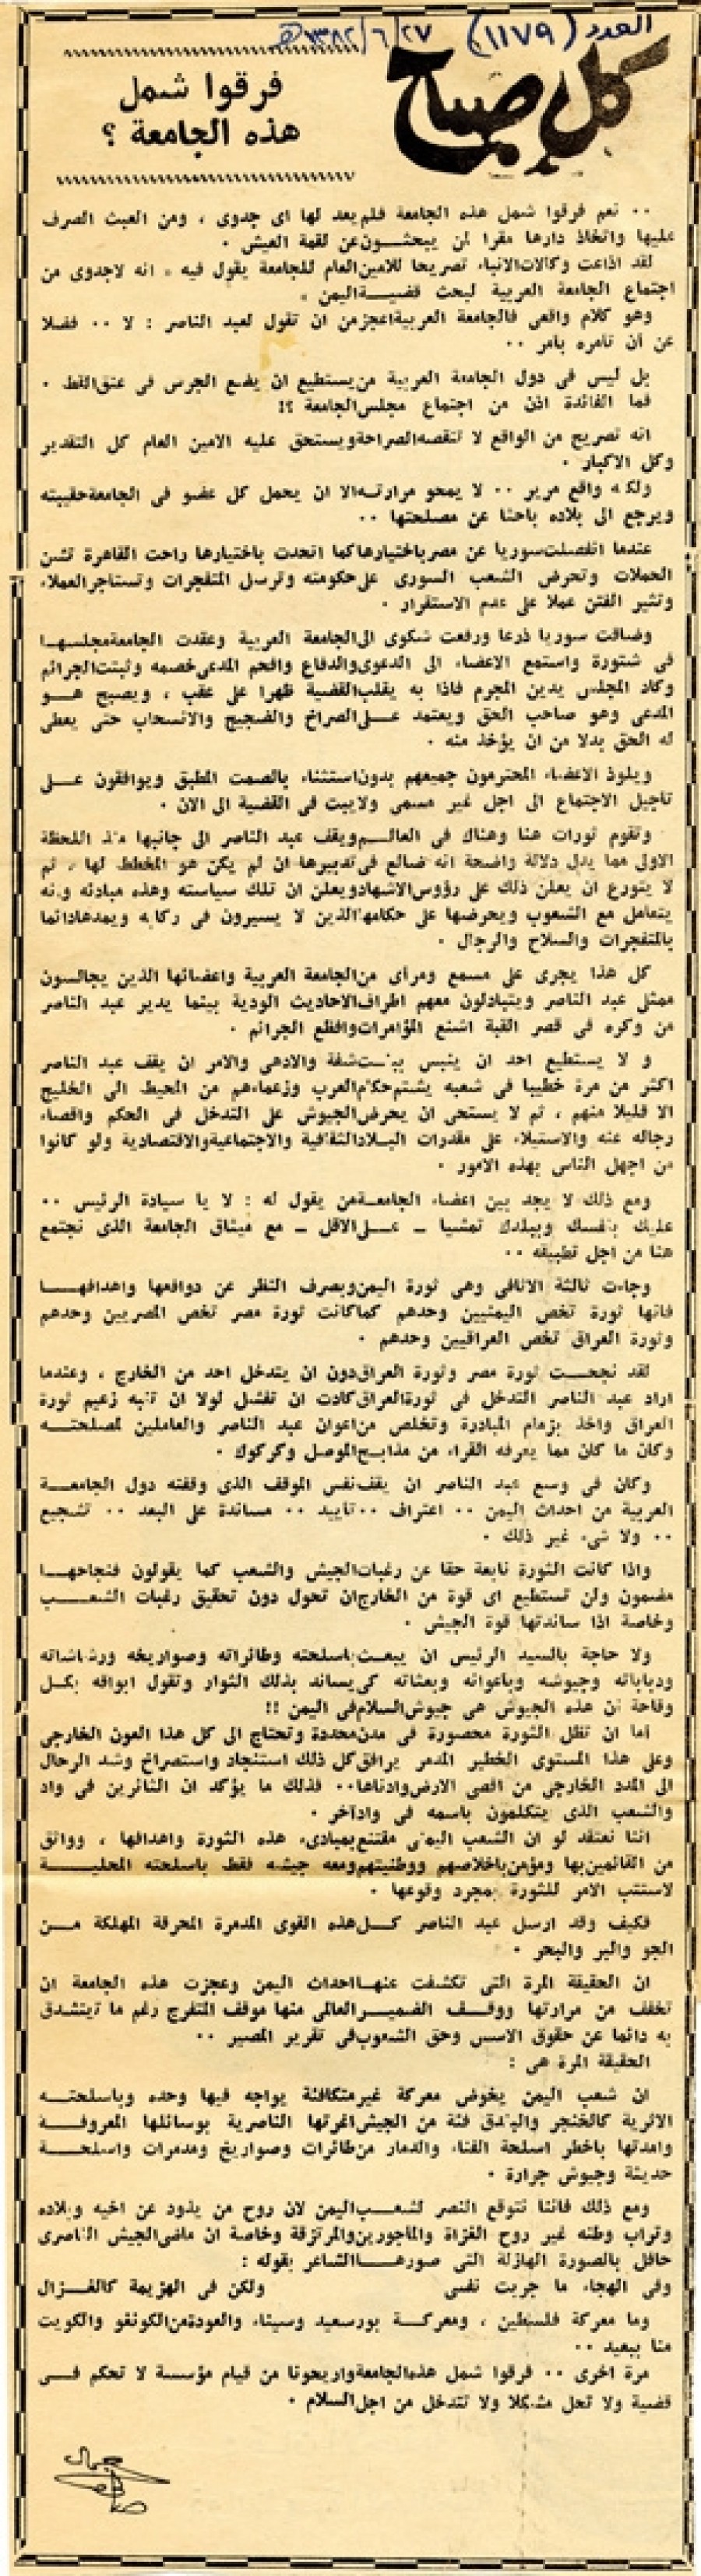 العدد (١١٧٩) ٢٧/٦/١٣٨٢هـ
كل صباح
فرقوا شمل
هذه الجامعة ؟
٠٠ نعم فرقوا شمل هذه الجامعة فلم يعد لها اى جدوى ، ومن العبث الصرف
عليها واتخاذ دارها مقرا لمن يبحثــون عن لقمة العيش ٠
لقد اذاعت وكالات الانباء تصريحا للامين العام للجامعة يقول فيه ، انه لاجدوى من
اجتماع الجامعة العربية لبحث قضيــة اليمن ٠
وهو كلام واقعى فالجامعة العربية اعجز من ان تقول لعبد الناصر : لا ٠٠ فضلا
عن ان تامره بامر ٠٠
بل ليس فى دول الجامعة العربية من يستطيع ان يضع الجرس فى عنق القط ٠
فما الفائدة اذن من اجتماع مجلس الجامعة ؟!
انه تصريح من الواقع لا تنقصه الصراحة ويستحق عليه الامين العام كل التقدير
وكل الاكبار ٠
ولكنه واقع مرير ٠٠ لا يمحو مرارتــه الا ان يحمل كل عضو فى الجامعة حقيبته
ويرجع الى بلاده باحثا عن مصلحتها ٠٠
عندما انفصلت سوريا عن مصر باختيارها كما اتحدت باختيارها راحت القاهرة تشن
الحملات وتحرض الشعب السورى على حكومته وترسل المتفجرات وتستاجر العملاء
وتثير الفتن عملا على عدم الاستقرار ٠
وضاقت سوريا ذرعا ورفعت شكوى الى الجامعة العربية وعقدت الجامعة مجلسهــا
فى شتورة واستمع الاعضاء الى الدعوى والدفاع وافحم المدعى خصمه وثبتت الجرائم
وكاد المجلس يدين المجرم فاذا به يقلب القضية ظهرا على عقب ، ويصبح هــو
المدعى وهو صاحب الحق ويعتمد عــلى الصراخ والضجيج والانسحاب حتى يعطى
له الحق بدلا من ان يؤخذ منه ٠
ويلوذ الاعضاء المحترمون جميعهم بدون استثناء بالصمت المطبق ويوافقون عــلى
تأجيل الاجتماع الى اجل غير مسمى ولا يبت فى القضية الى الان ٠
وتقوم ثورات هنا وهناك فى العالــم ويقف عبد الناصر الى جانبها منذ اللحظة
الاولى مما يدل دلالة واضحة انه ضالع فى تدبيرها ان لم يكن هو المخطط لها ، ثم
لا يتورع ان يعلن ذلك على رؤوس الاشهاد ويعلن ان تلك سياسته وهذه مبادئه وانه
يتعامل مع الشعوب ويحرضها على حكامها الذين لا يسيرون فى ركابه ويمدها دائما
بالمتفجرات والسلاح والرجال ٠
كل هذا يجرى على مسمع ومرأى من الجامعة العربية واعضائها الذين يجالسون
ممثلى عبد الناصر ويتبادلون معهم اطراف الاحاديث الودية بينما يدير عبد الناصر
من وكره فى قصر القبة اشنع المؤامرات وافظع الجرائم ٠
و لا يستطيع احد ان ينبس ببنــت شفة والادهى والامر ان يقف عبد الناصر
اكثر من مرة خطيبا فى شعبه يشتم حكام العرب وزعماءهم من المحيط الى الخليج
الا قليلا منهم ، ثم لا يستحى ان يحرض الجيوش على التدخل فى الحكم واقصاء
رجاله عنه والاستيلاء على مقدرات البــلاد الثقافية والاجتماعية والاقتصادية ولو كانوا
من اجهل الناس بهذه الامور ٠
ومع ذلك لا يجد بين اعضاء الجامعــة من يقول له : لا يا سيادة الرئيس ٠٠
عليك بنفسك وببلدك تمشيا ـ عــلى الاقل ـ مع ميثاق الجامعة الذى نجتمع
هنا من اجل تطبيقه ٠٠
وجاءت ثالثة الاثافى وهى ثورة اليمن وبصرف النظر عن دوافعها واهدافهــا
فانها ثورة تخص اليمنيين وحدهم كما كانت ثورة مصر تخص المصريين وحدهم
وثورة العراق تخص العراقيين وحدهم ٠
لقد نجحــت ثورة مصر وثورة العراق دون ان يتدخل احد من الخارج ، وعندما
اراد عبد الناصر التدخل فى ثورة العراق كادت ان تفشل لولا ان تنبه زعيم ثورة
العراق واخذ بزمام المبادرة وتخلص من اعوان عبد الناصر والعاملين لمصلحتــه
وكان ما كان مما يعرفه القراء من مذابــح الموصل وكركوك ٠
وكان فى وسع عبد الناصر ان يقف نفس الموقف الذى وقفته دول الجامعــة
العربية من احداث اليمن ٠٠ اعتراف ٠٠ تأييد ٠٠ مساندة على البعد ٠٠ تشجيع
٠٠ ولا شىء غير ذلك ٠
واذا كانت الثورة نابعة حقا عن رغبات الجيش والشعب كما يقولون فنجاحهــا
مضمون ولن تستطيع اى قوة من الخارج ان تحول دون تحقيق رغبات الشعــب
وخاصة اذا ساندتها قوة الجيش ٠
ولا حاجة بالسيد الرئيس ان يبعــث باسلحته وطائراته وصواريخه ورشاشاته
ودباباته وجيوشه وباعوانه وبعثاته كى يساند بذلك الثوار وتقول ابواقه بكــل
وقاحة ان هذه الجيوش هى جيوش السلام فى اليمن !!
أما ان تظل الثورة محصورة فى مدن محددة وتحتاج الى كل هذا العون الخارجى
وعلى هذا المستوى الخطير المدمر يرافق كل ذلك استنجاد واستصراخ وشد الرحال
الى المدد الخارجى من اقصى الارض وادناها ٠٠ فذلك ما يؤكد ان الثائرين فى واد
والشعب الذى يتكلمون باسمه فى واد آخر ٠
اننا نعتقد لو ان الشعب اليمنى مقتنع بمبادىء هذه الثورة واهدافها ، وواثق
من القائمين بها ومؤمن باخلاصهم ووطنيتهم ومعه جيشه فقط باسلحته المحليــة
لاستتب الامر للثورة بمجرد وقوعها ٠
فكيف وقد ارسل عبد الناصر كــل هذه القوى المدمرة المحرقة المهلكة مــن
الجو والبر والبحر ٠
ان الحقيقة المرة التى تكشفت عنهــا احداث اليمن وعجزت هذه الجامعة ان
تخفف من مرارتها ووقــف الضميــر العالمى منها موقف المتفرج رغم ما يتشدق
به دائما عن حقوق الاسس وحق الشعوب فى تقرير المصير ٠٠
الحقيقة المرة هى :
ان شعب اليمن يخوض معركة غير متكافئة يواجه فيها وحده وباسلحتــه
الاثرية كالخنجر والبندق فئة من الجيش اغرتها الناصرية بوسائلها المعروفــة
وامدتها باخطر اسلحة الفناء والدمار من طائرات وصواريخ ومدمرات واسلحــة
حديثة وجيوش جرارة ٠
ومع ذلك فاننا نتوقع النصر لشعــب اليمن لان روح من يذود عن اخيه وبلاده
وتراب وطنه غير روح الغزاة والمأجورين والمرتزقة وخاصة ان ماضى الجيش الناصرى
حافل بالصورة الهازلة التى صورهــا الشاعر بقوله :
وفى الهجاء ما جربت نفسى ولكن فى الهزيمة كالغــزال
وما معركة فلسطين ، ومعركــة بورسعيد وسيناء والعودة من الكونغو والكويت
منا ببعيد ٠٠
مرة اخرى ٠٠ فرقوا شمل هذه الجامعة واريحونا من قيام مؤسسة لا تحكم فــى
قضية ولا تحل مشكلا ولا تتدخل من اجل السلام ٠